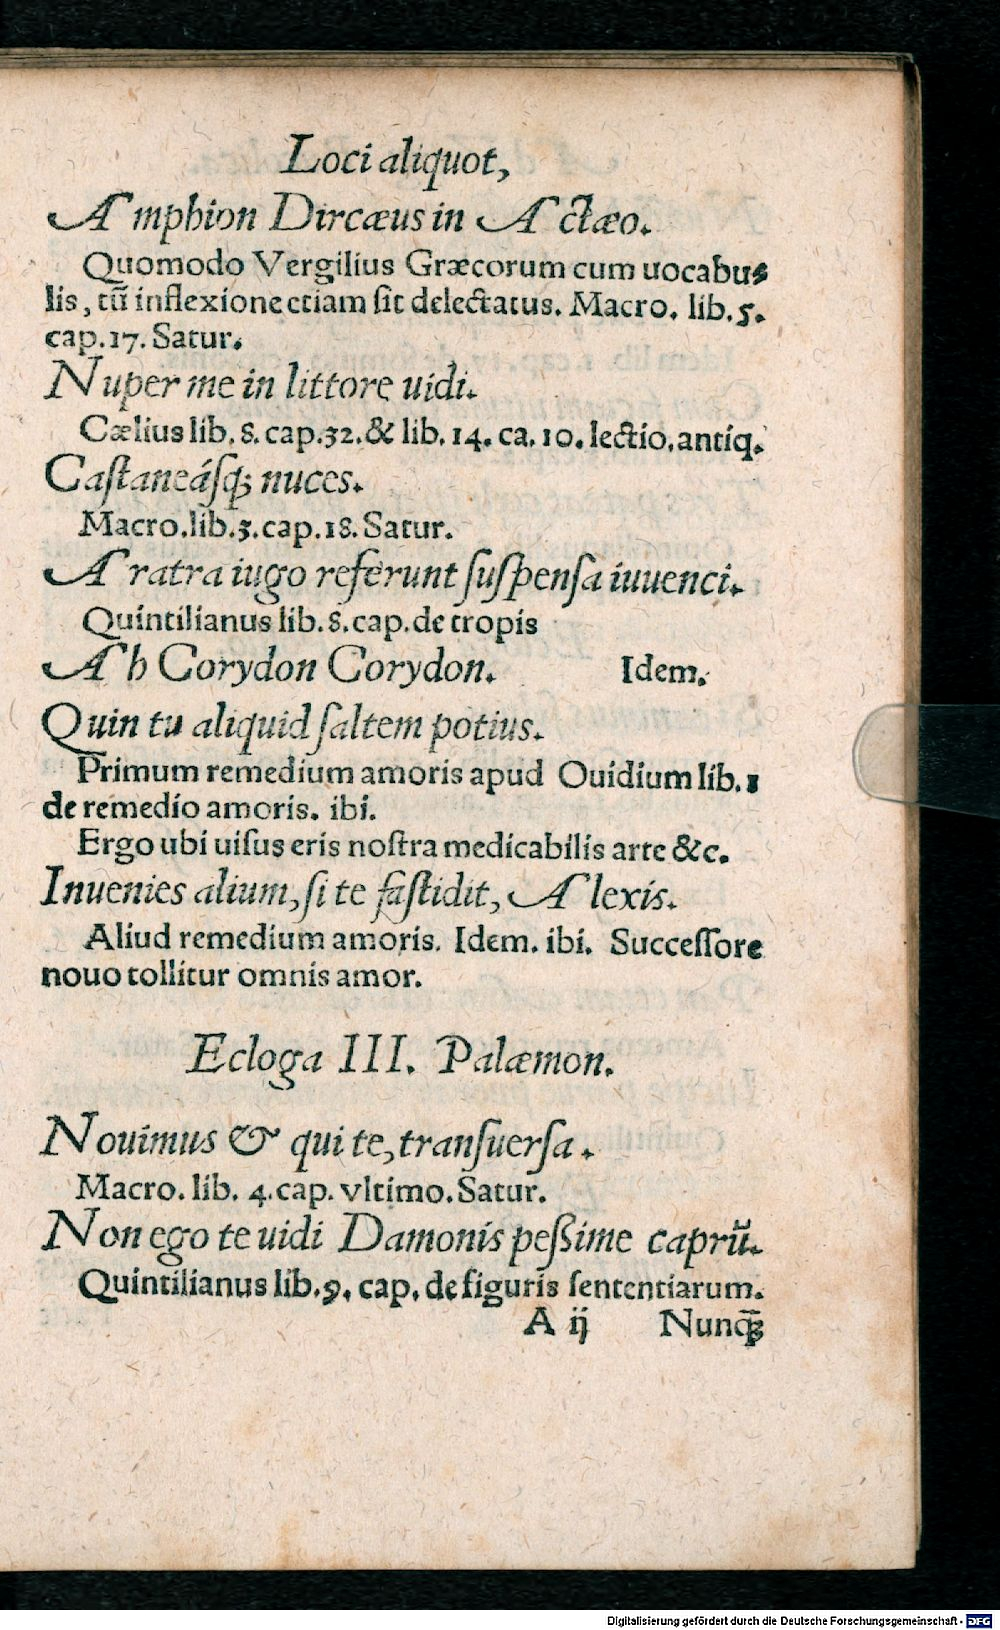 Loci aliquot,
Amphion Dircæus in Actæo.
Quomodo Vergilius Græcorum cum uocabu⸗
lis, tū inflexione etiam ſit delectatus. Macro. lib. 5.
cap. 17. Satur.
Nuper me in littore uidi.
Cælius lib. 8. cap. 32. & lib. 14. ca. 10. lectio. antiq.
Caſtaneáſq; nuces.
Macro. lib. 3. cap. 18. Satur.
Aratra iugo referunt ſuſpenſa iuuenci.
Quintilianus lib. 8. cap. de tropis
Ah Corydon Corydon. Idem.
Quin tu aliquid ſaltem potius.
Primum remedium amoris apud Ouidium lib. 1
de remedio amoris. ibi.
Ergo ubi uiſus eris noſtra medicabilis arte &c.
Inuenies alium, ſi te faſtidit, Alexis.
Aliud remedium amoris. Idem. ibi. Succeſſore
nouo tollitur omnis amor.
Ecloga III. Palæmon.
Nouimus & qui te, tranſuerſa.
Macro. lib. 4. cap. vltimo. Satur.
Non ego te uidi Damonis peßime caprū.
Quintilianus lib. 9. cap. de figuris ſententiarum.
A ij Nunq̃;
Digitalisierung gefördert durch die Deutsche Forschungsgemeinschaft - DFG